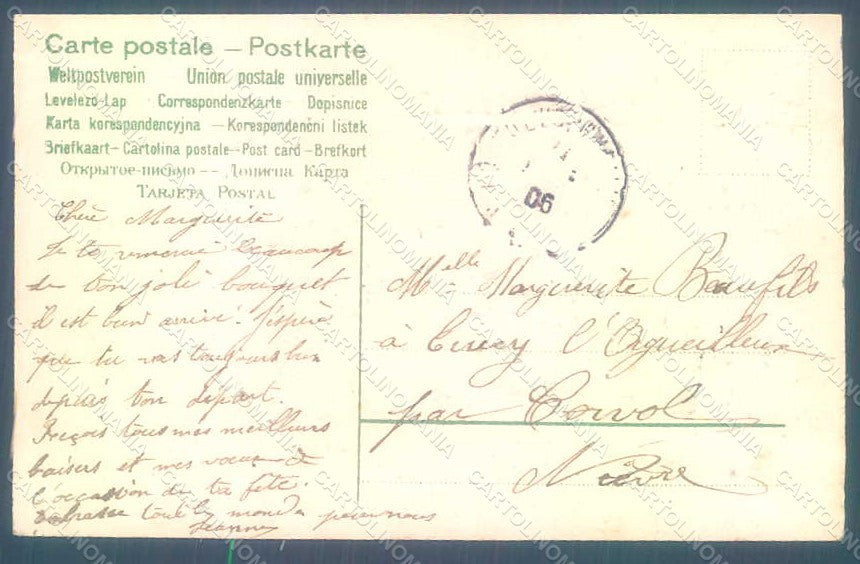 Carte postale — Postkarte
Weltpostverein Union postale universelle
Levelezo-Lap Correspondenzkarte Dopisnice
Karta korespondencyjna — Korespondenční listek
Briefkaart — Cartolina postale — Post card — Brefkort
Открытое-письмо -- Дописна Карта
TARJETA POSTAL
Chère Marguerite
Je te remercie beaucoup
de ton joli bouquet
il est bien arrivé. J'espère
que tu vas toujours bien
depuis ton départ.
Reçois tous mes meilleurs
baisers et mes voeux à
l'occasion de ta fête.
tout le monde pour nous
Jeanne
06
Melle Marguerite Beaufils
à Cuncy l'Orgueilleux
par Corvol
Nièvre
CARTOLINOMANIA